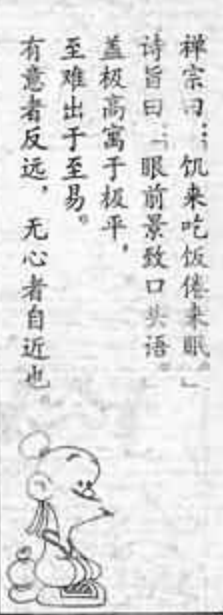 禅宗曰：「饥来吃饭倦来眠。」
诗旨曰：「眼前景致口头语。」
盖极高寓于极平，
至难出于至易。
有意者反远，无心者自近也。